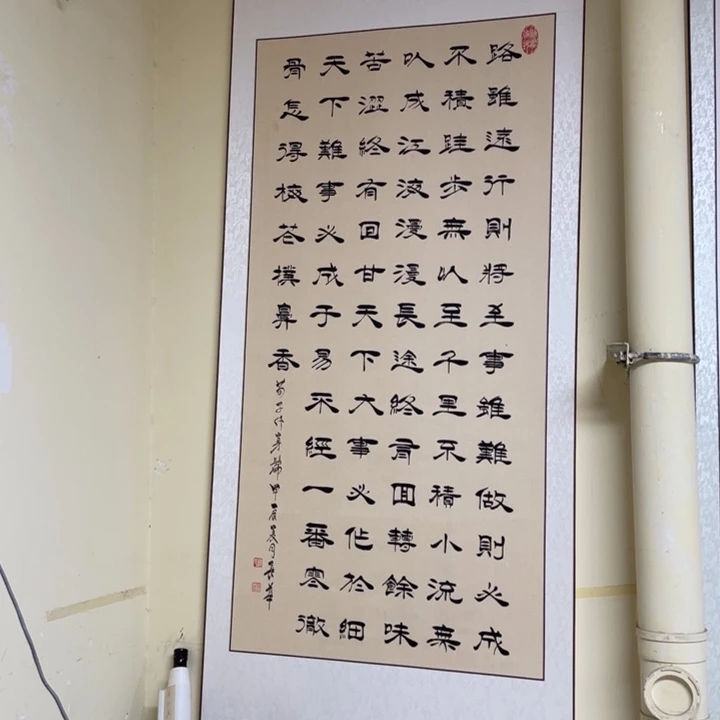 路雖遠行則將至事雖難做則必成
不積跬步無以至千里不積小流無
以成江海漫漫長途終有回轉餘味
苦澀終有回甘天下大事必作於細
天下難事必成于易不經一番寒徹
骨怎得梅花撲鼻香
荀子修身篇甲辰